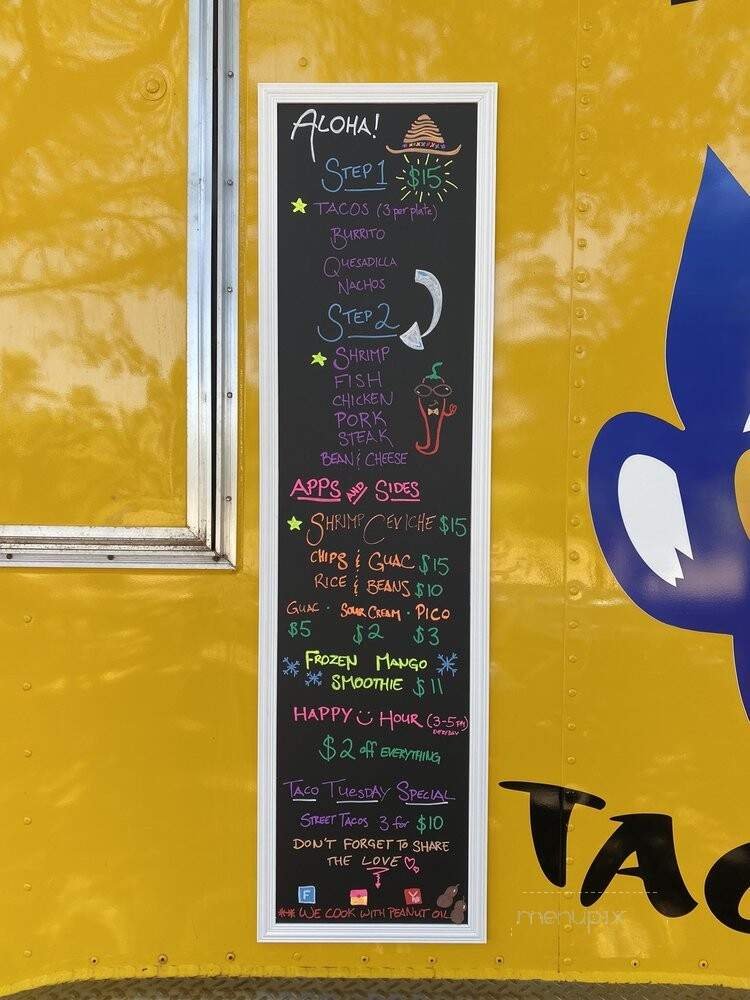 ALOHA!
STEP 1 $15
TACOS (3 per plate)
BURRITO
QUESADILLA
NACHOS
STEP 2
SHRIMP
FISH
CHICKEN
PORK
STEAK
BEAN & CHEESE
APPS AND SIDES
SHRIMP CEVICHE $15
CHIPS & GUAC $15
RICE & BEANS $10
GUAC · SOUR CREAM · PICO
$5 $2 $3
FROZEN MANGO
SMOOTHIE $11
HAPPY HOUR (3-5PM)
EVERYDAY
$2 off EVERYTHING
TACO TUESDAY SPECIAL
STREET TACOS 3 for $10
DON'T FORGET TO SHARE
THE LOVE
F Y
** WE COOK WITH PEANUT OIL
TACO
menupix